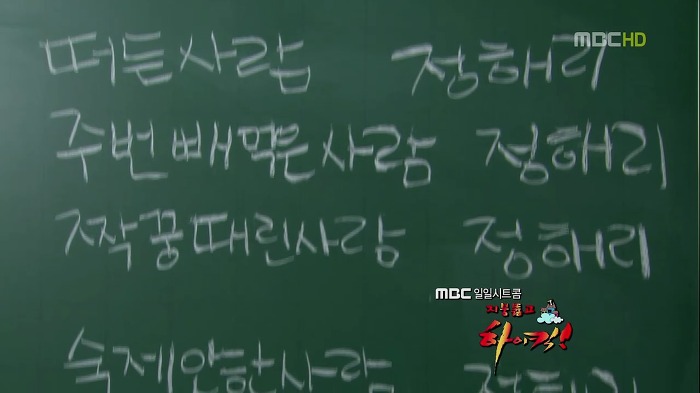 MBC HD
떠든사람 정해리
주번 빼먹은 사람 정해리
짝꿍때린사람 정해리
MBC 일일시트콤
지붕뚫고
하이킥!
숙제안한사람 정해리